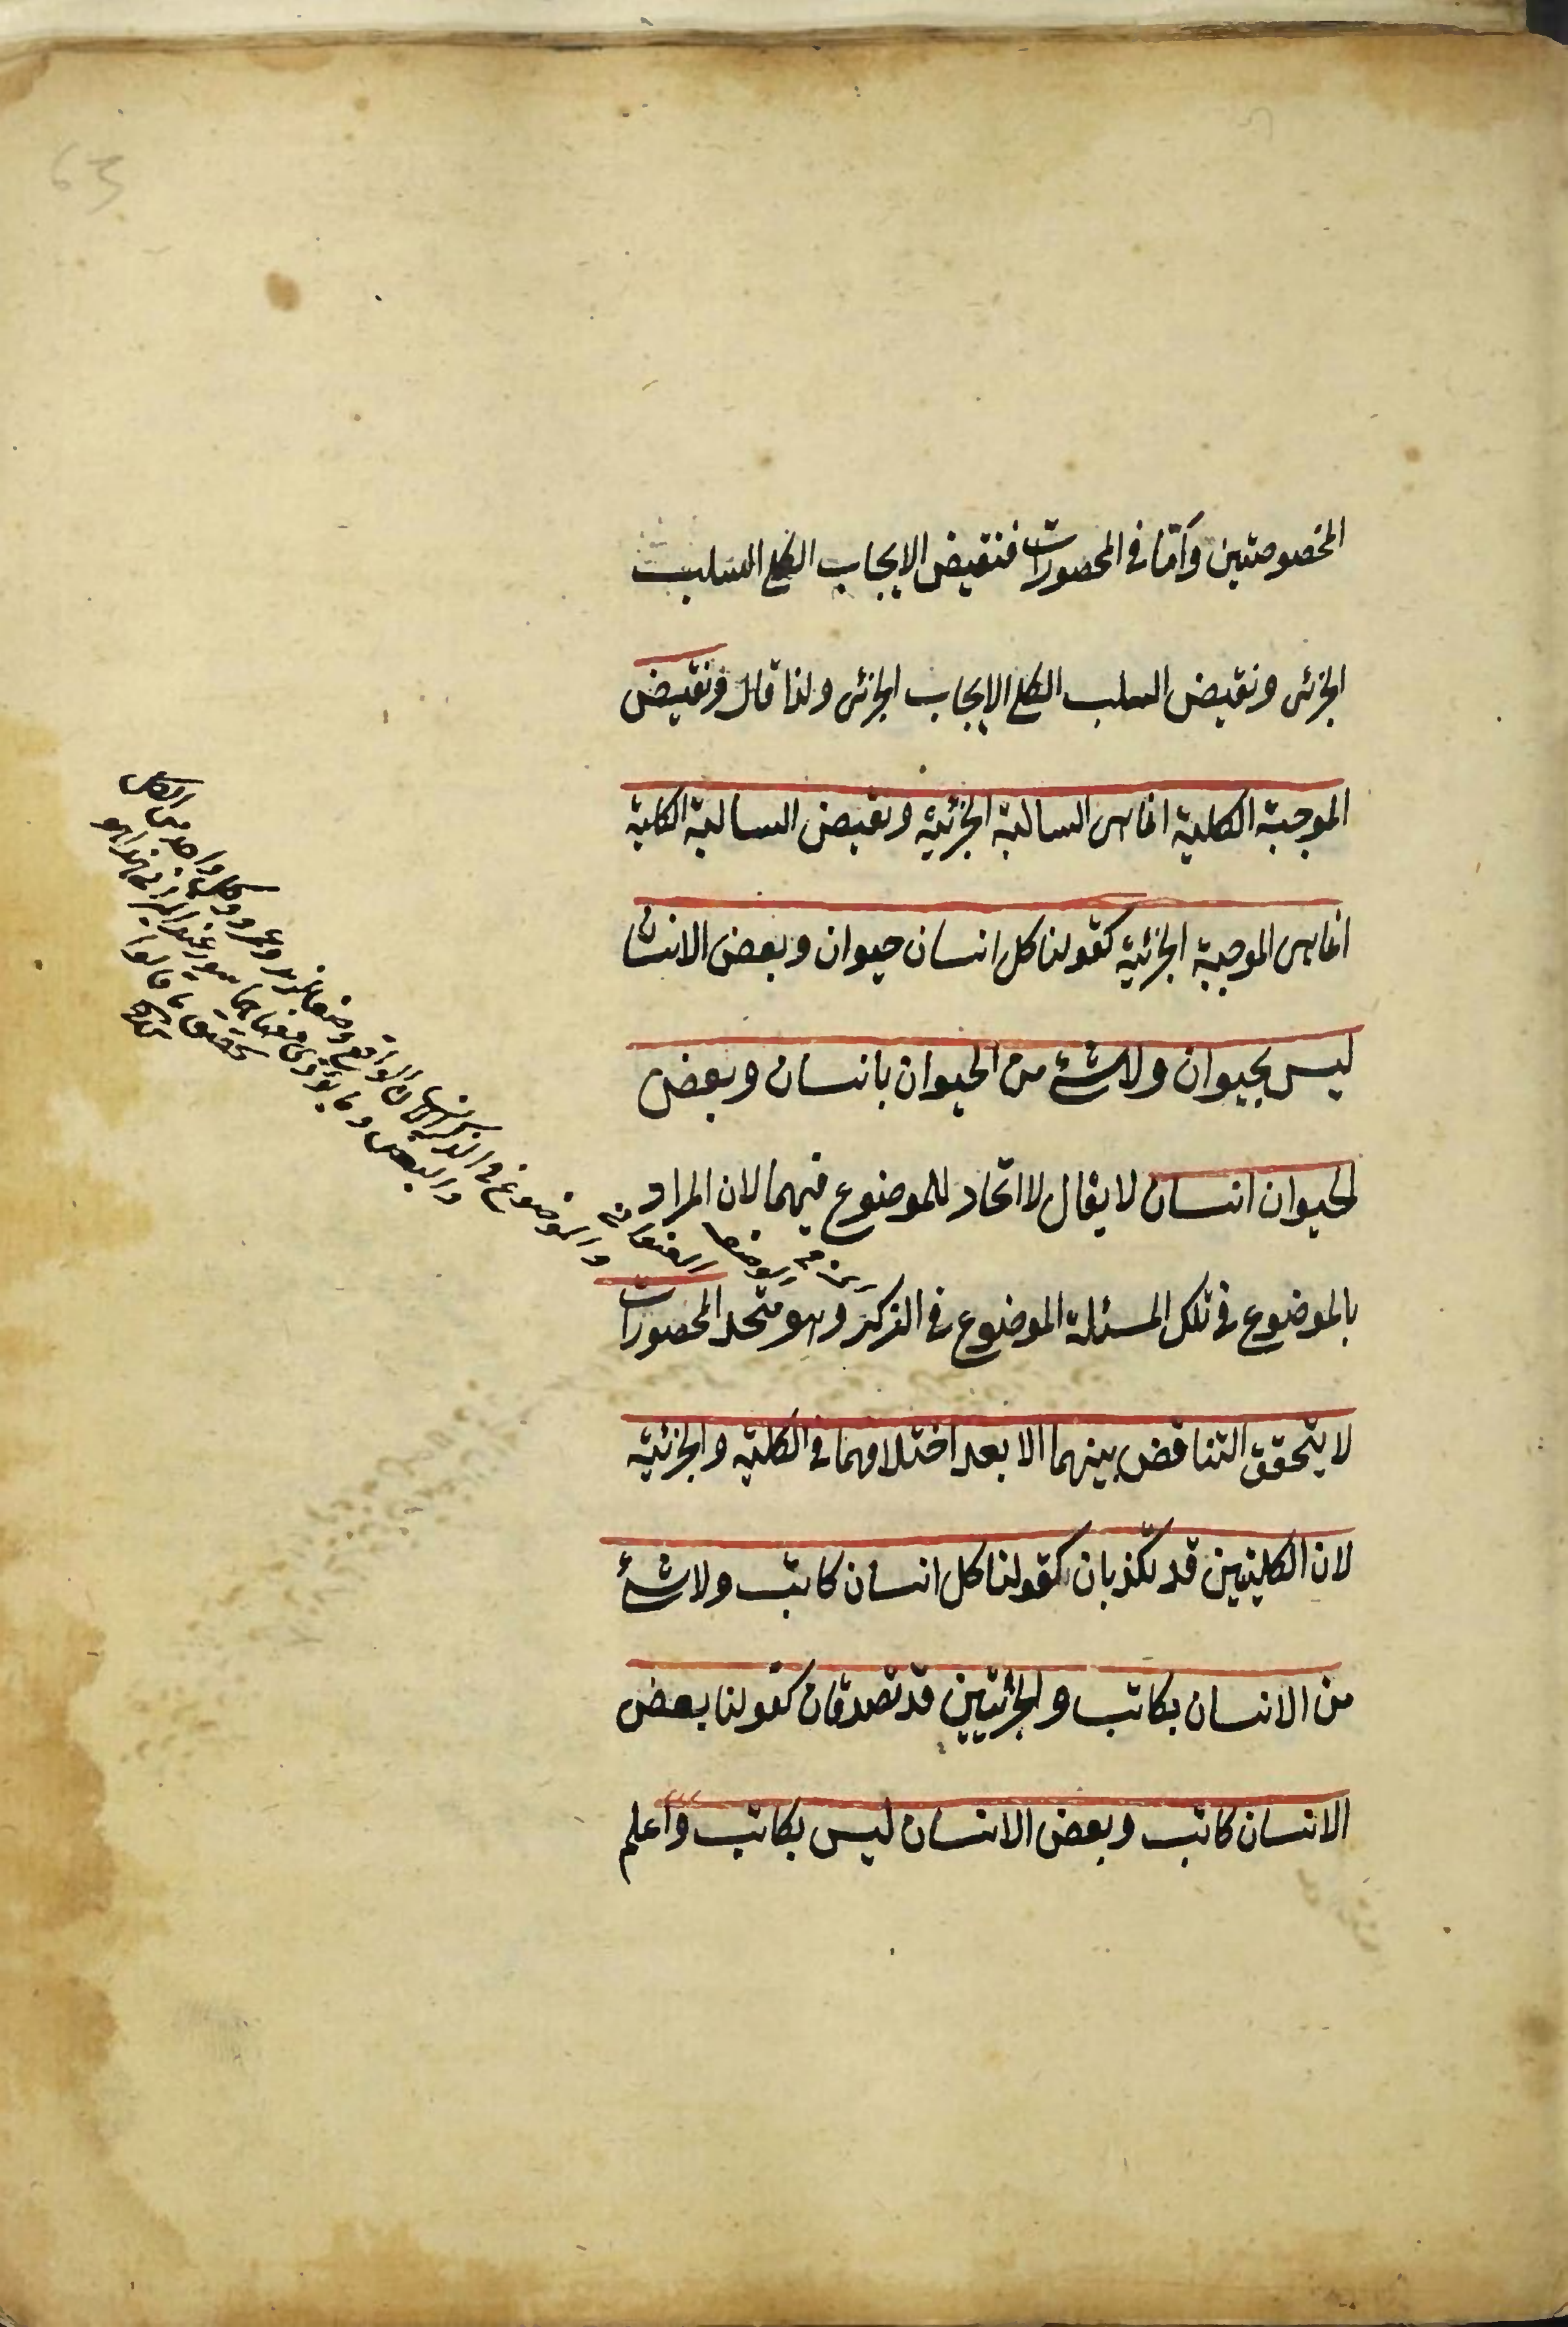 المخصوصتين وأمّا في المحصورات فنقيض الايجاب الكلي السلب
الجزئى ونقيض السلب الكلي الايجاب الجزئى ولذا قال ونقيض
الموجبة الكلية انما هى السالبة الجزئية ونقيض السالبة الكلية
انما هى الموجبة الجزئية كقولنا كل انسان حيوان وبعض الانسا
ليس بحيوان ولا شئ من الحيوان بانسان وبعض
الحيوان انسان لا يقال لا اتحاد للموضوع فيهما لان المراد
بالموضوع في تلك المسئلة الموضوع في الذكر وهو متحد المحصورات
لا يتحقق التناقض بينهما الا بعد اختلافهما في الكلية والجزئية
لان الكليتين قد تكذبان كقولنا كل انسان كاتب ولا شئ
من الانسان بكاتب والجزئيتين قد تصدقان كقولنا بعض
الانسان كاتب وبعض الانسان ليس بكاتب وأعلم
والموضوع في الذكر
والبعض وما يؤدى
63